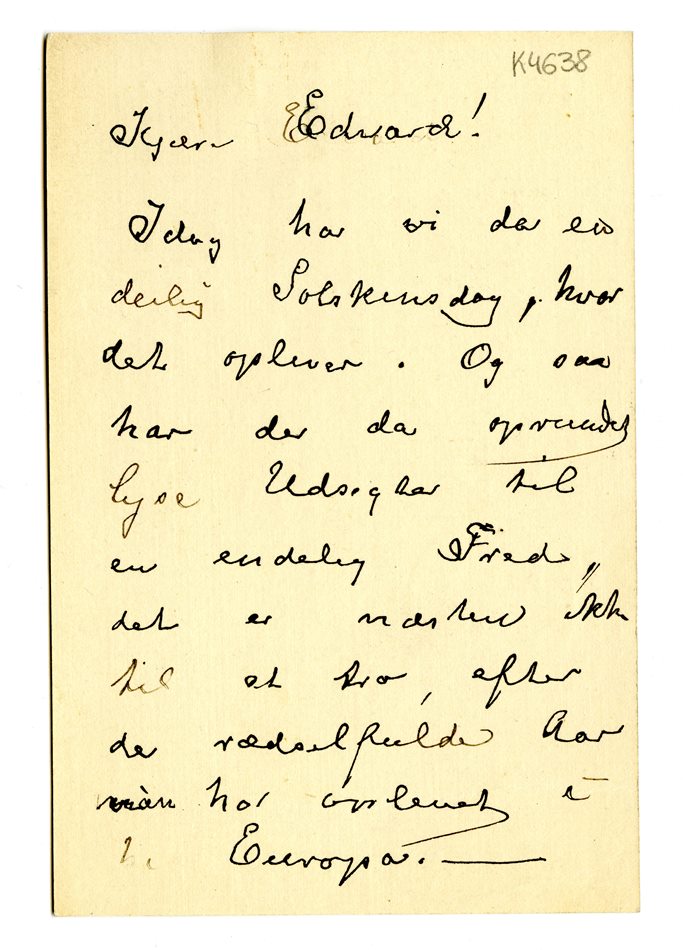 K4638
Kjære Edvard!
Idag har vi da en
deilig Solskinsdag, hvor
det oplever. Og saa
har der da oprundet
lyse Udsigter til
en endelig Fred,
det er næsten ikke
til at tro, efter
de rædselfulde Aar
man har oplevet i
Europa.